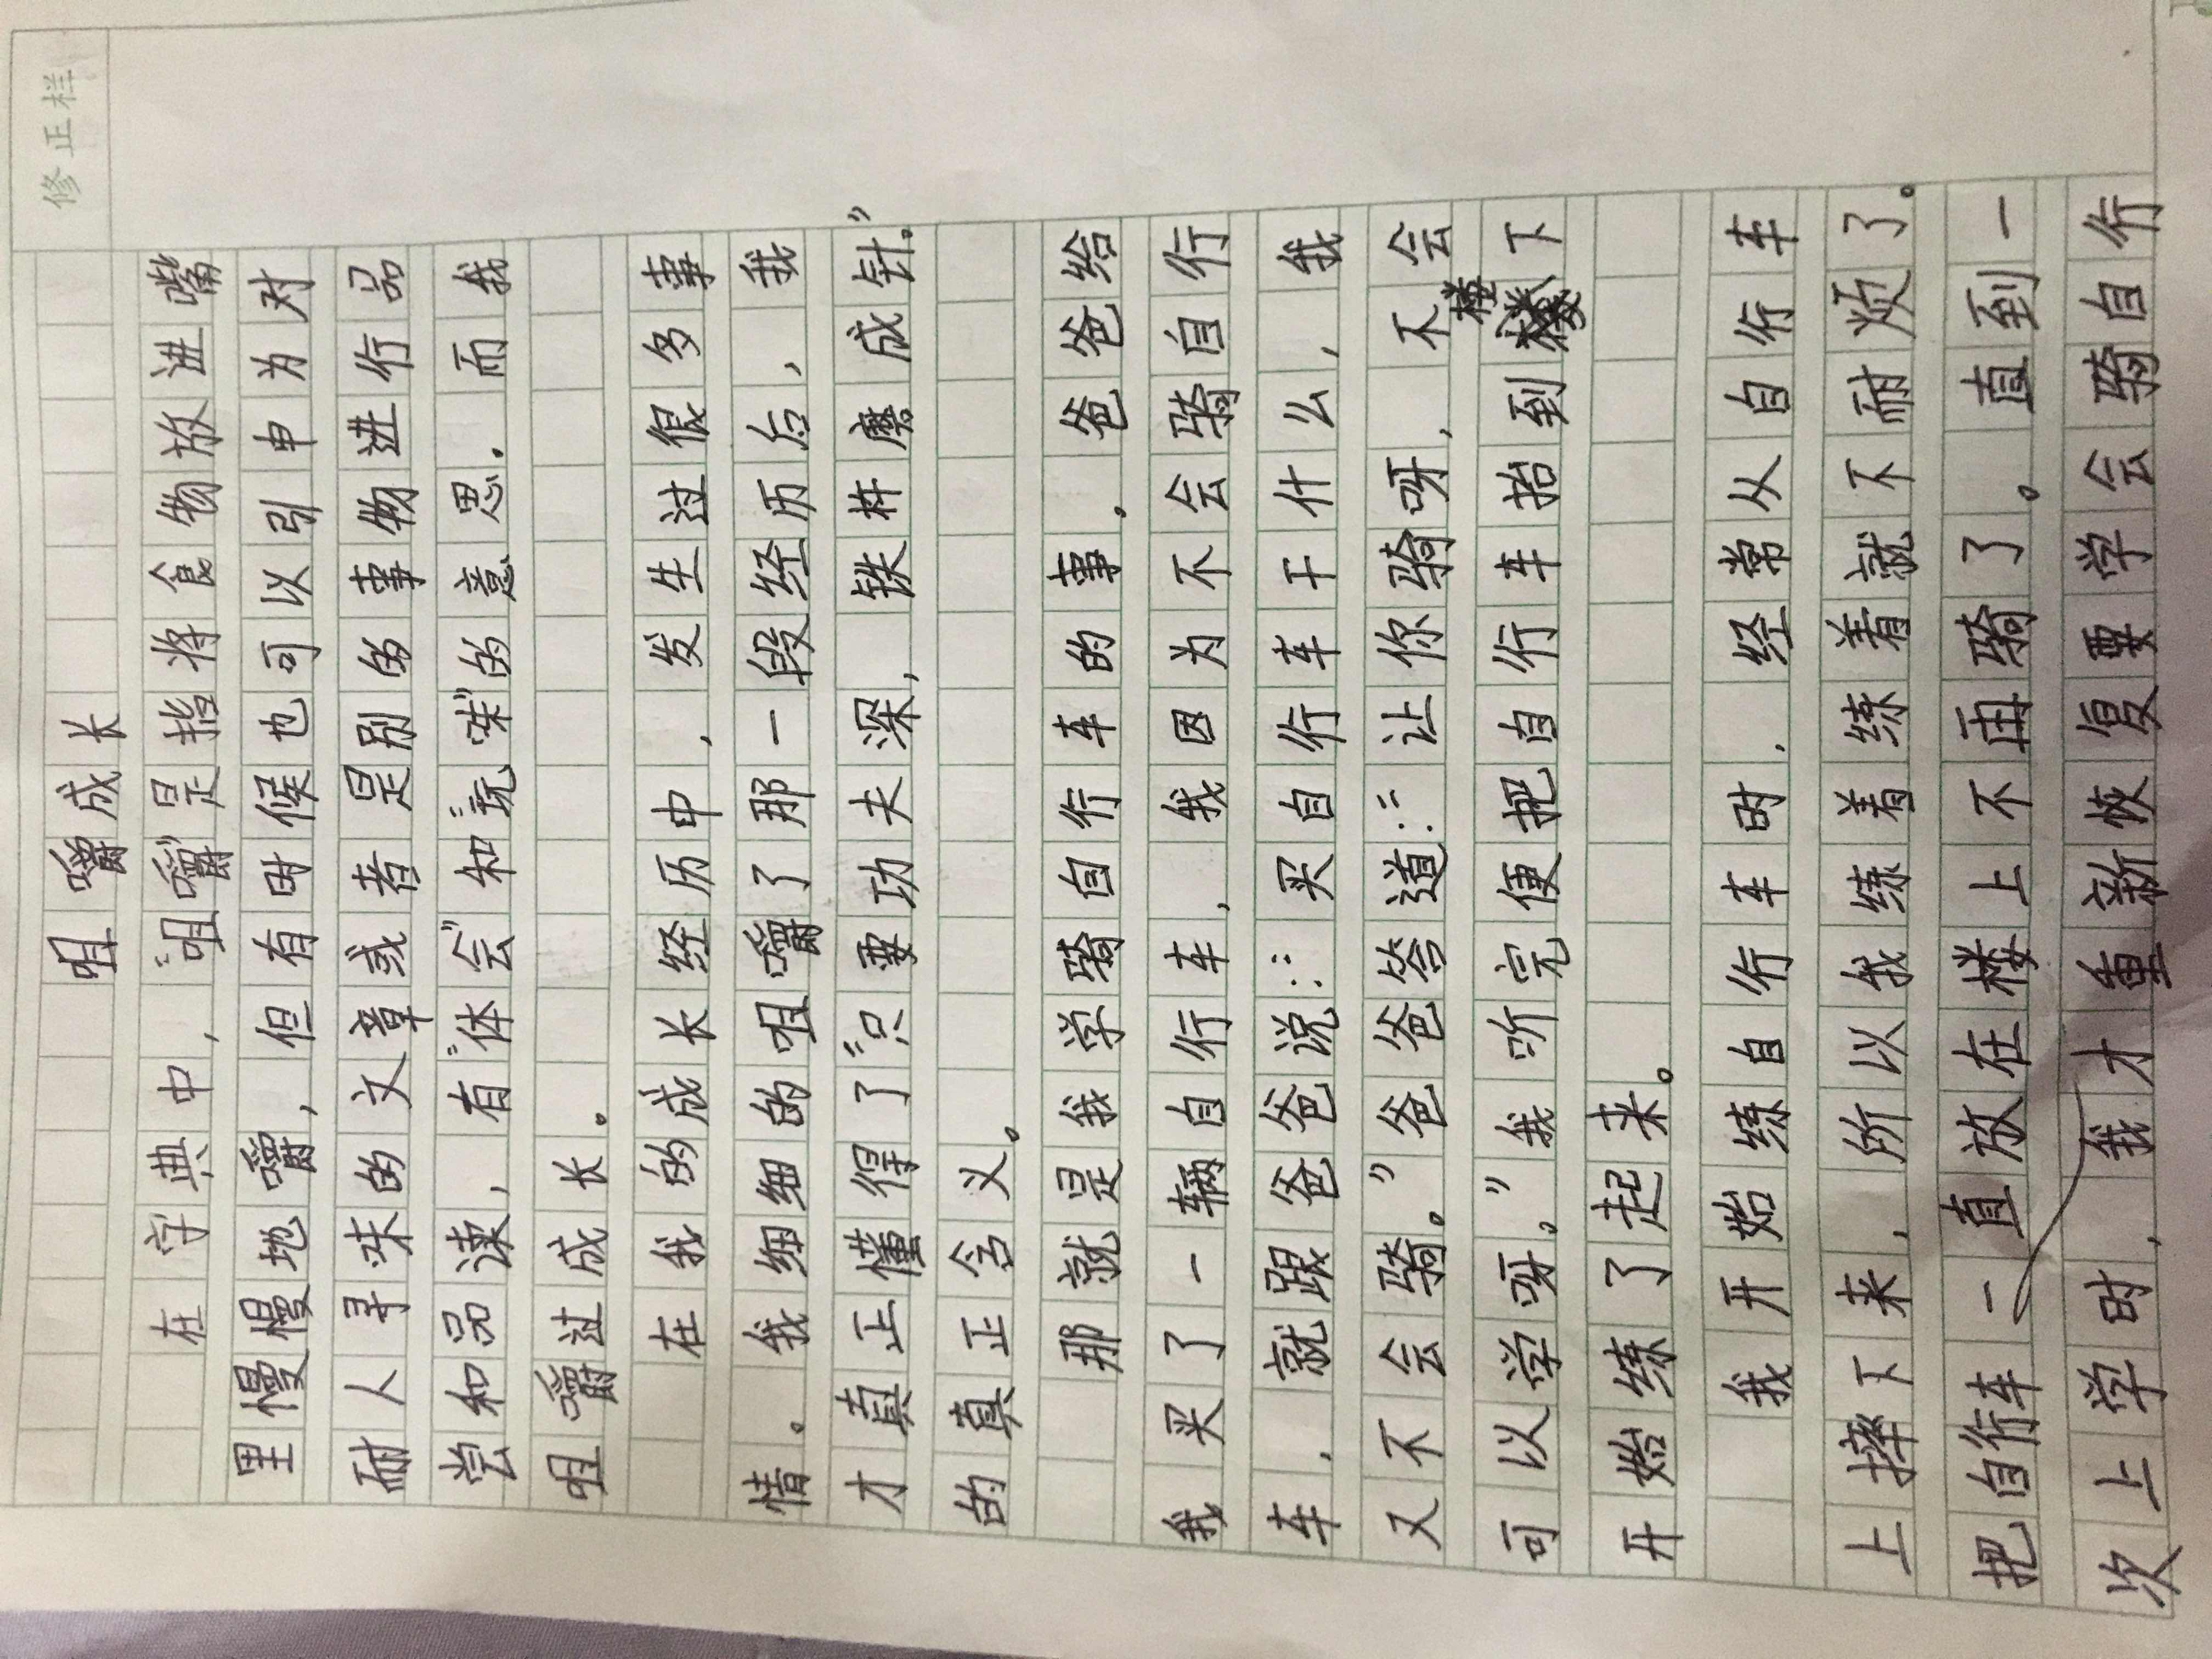 修正栏
咀嚼成长
在字典中，“咀嚼”是指将食物放进嘴
里慢慢地嚼，但有时候也可以引申为对
耐人寻味的文章或者是别的事物进行品
尝和品读，有“体会”和“玩味”的意思.而我
咀嚼过成长。
在我的成长经历中，发生过很多事
情。我细细的咀嚼了那一段经历后，我
才真正懂得了“只要功夫深，铁杵磨成针。”
的真正含义。
那就是我学骑自行车的事。爸爸给
我买了一辆自行车，我因为不会骑自行
车，就跟爸爸说：“买自行车干什么，我
又不会骑。”爸爸答道：“让你骑呀，不会
可以学呀。”我听完便把自行车抬到楼下
开始练了起来。
我开始练自行车时.经常从自行车
上摔下来，所以我练着练着就不耐烦了。
把自行车一直放在楼上不再骑了。直到一
次上学时，我才重新恢复要学会骑自行